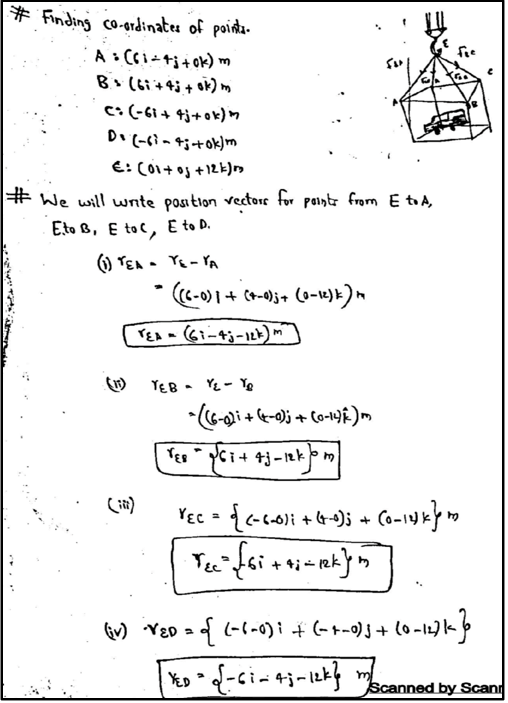 # Finding co-ordinates of points.
A : (6i - 4j + 0k) m
B : (6i + 4j + 0k) m
C : (-6i + 4j + 0k) m
D : (-6i - 4j + 0k) m
E : (0i + 0j + 12k) m
E
A
B
C
# We will write position vectors for points from E to A,
E to B, E to C, E to D.
(i) rEA = rE - rA
= ((6-0)i + (4-0)j + (0-12)k) m
rEA = (6i - 4j - 12k) m
(ii) rEB = rE - rB
= ((6-0)i + (4-0)j + (0-12)k) m
rEB = {6i + 4j - 12k} m
(iii) rEC = {(-6-0)i + (4-0)j + (0-12)k} m
rEC = {-6i + 4j - 12k} m
(iv) rED = {(-6-0)i + (-4-0)j + (0-12)k}
rED = {-6i - 4j - 12k} m
Scanned by Scann